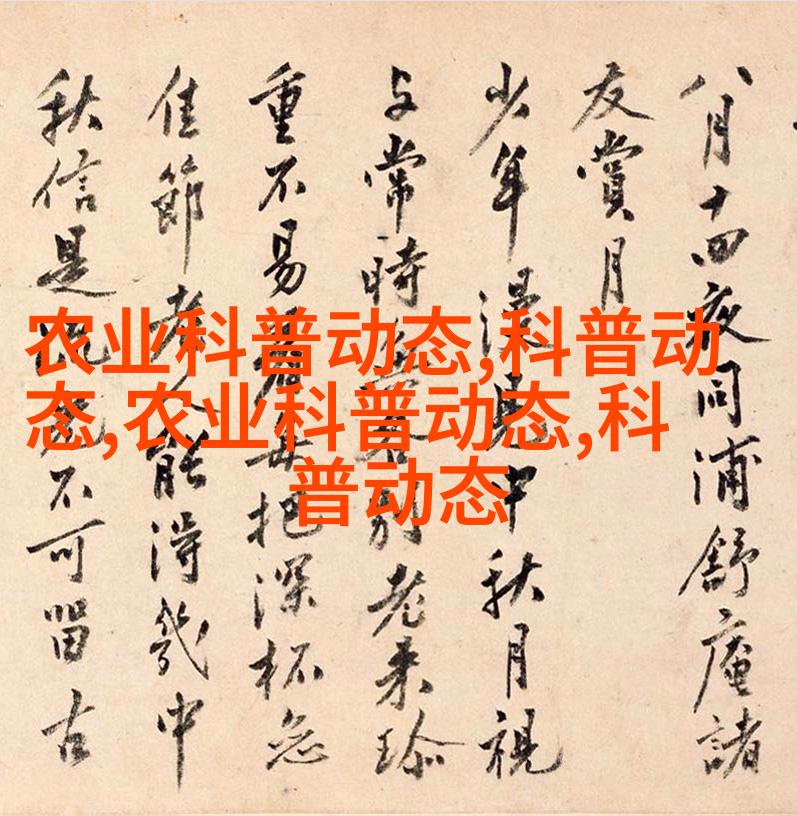 农业科普动态,科普动
态,农业科普动态,科
普动态
八月十四夜同浦舒庵諸
友賞月
少年漫見中秋月視
与常時別老来珎
重不易把深杯
佳節老人能得幾中
秋信是不可留古